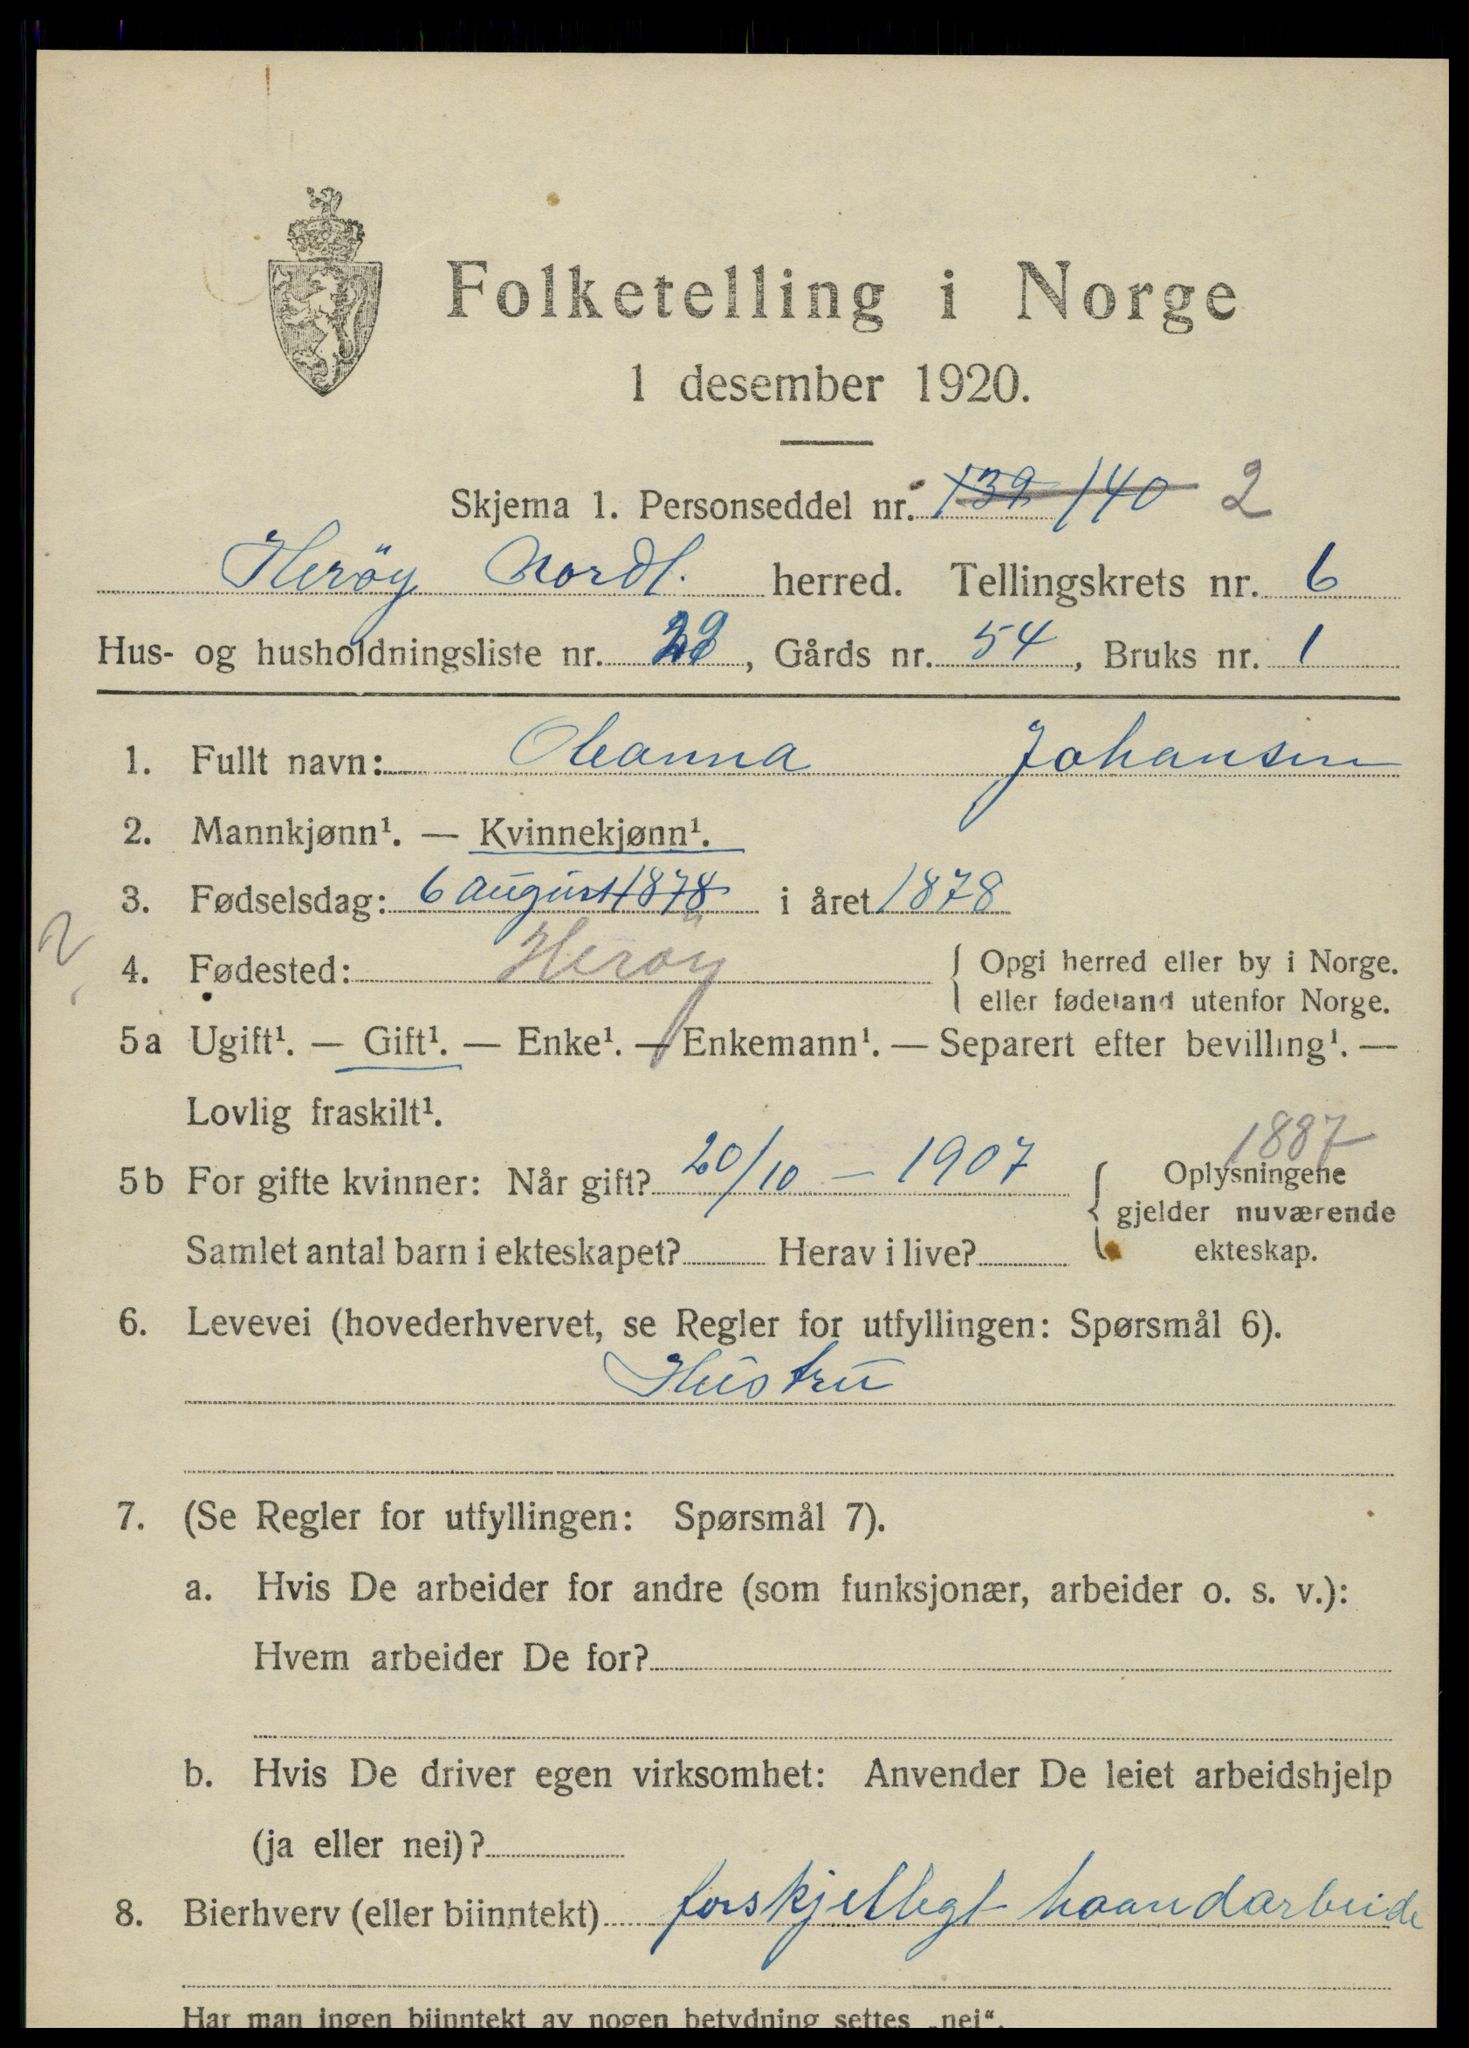 Folketelling i Norge
1 desember 1920.
Skjema 1. Personseddel nr. 139 140 2
Herøy Nordl. herred. Tellingskrets nr. 6
Hus- og husholdningsliste nr. , Gårds nr. 54, Bruks nr. 1
1. Fullt navn: Oleanna Johansen
2. Mannkjønn¹. — Kvinnekjønn¹.
3. Fødselsdag: 6 august 1878 i året 1878
2
4. Fødested: Herøy { Opgi herred eller by i Norge.
eller fødeland utenfor Norge.
5a Ugift¹. — Gift¹. — Enke¹. — Enkemann¹. — Separert efter bevilling¹. —
Lovlig fraskilt¹.
1887
5b For gifte kvinner: Når gift? 20/10 – 1907 { Oplysningene
gjelder nuværende
Samlet antal barn i ekteskapet? Herav i live? ekteskap.
6. Levevei (hovederhvervet, se Regler for utfyllingen: Spørsmål 6).
Hustru
7. (Se Regler for utfyllingen: Spørsmål 7).
a. Hvis De arbeider for andre (som funksjonær, arbeider o. s. v.):
Hvem arbeider De for?
b. Hvis De driver egen virksomhet: Anvender De leiet arbeidshjelp
(ja eller nei)?
8. Bierhverv (eller biinntekt) forskjellegt haandarbeide
Har man ingen biinntekt av nogen betydning settes „nei“.